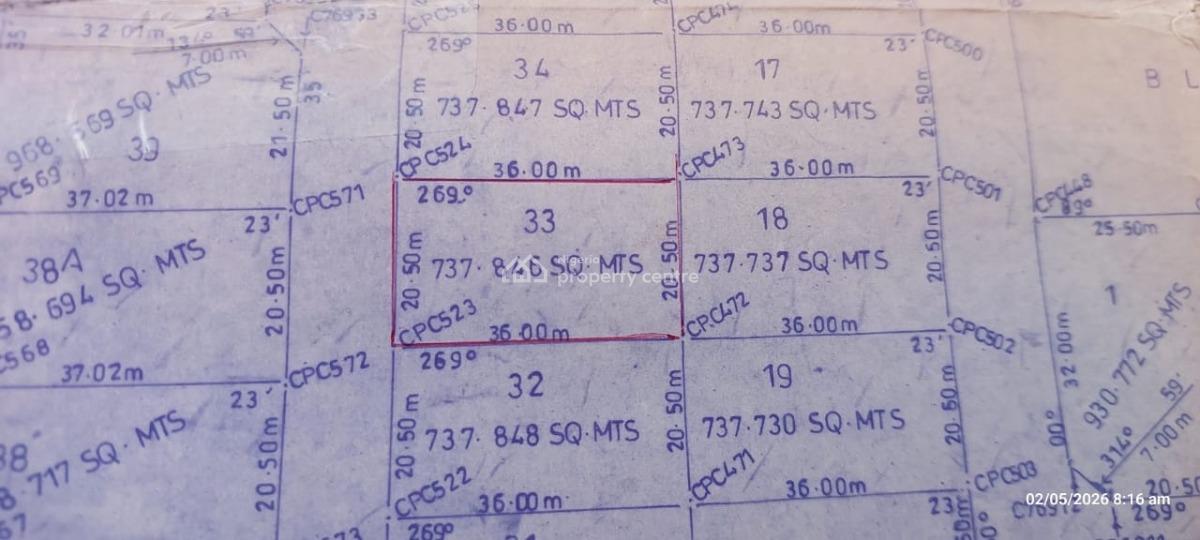 32.01m
23'
C76933
36.00m
36.00m
7.00m
269°
23'
CPC500
34
17
21.50m
35
20.50m
737.847 SQ.MTS
20.50m
737.743 SQ.MTS
20.50m
33
CPC524
36.00m
CPC473
36.00m
CPC501
37.02m
CPC571
269°
23'
CPC448
89°
23'
33
18
25.50m
38A
20.50m
20.50m
SQ.MTS
20.50m
737.737 SQ.MTS
20.50m
nigeria
property centre
58.694 SQ.MTS
20.50m
CPC523
36.00m
CPC472
36.00m
CPC502
1
C568
37.02m
CPC572
269°
23'
32.00m
930.772 SQ.MTS
23'
32
19
20.50m
737.848 SQ.MTS
20.50m
737.730 SQ.MTS
20.50m
00°
314°
59'
7.00m
8.717 SQ.MTS
20.50m
CPC522
36.00m
CPC471
36.00m
CPC503
02/05/2026 8:16 am
20.50
269°
23'
269°